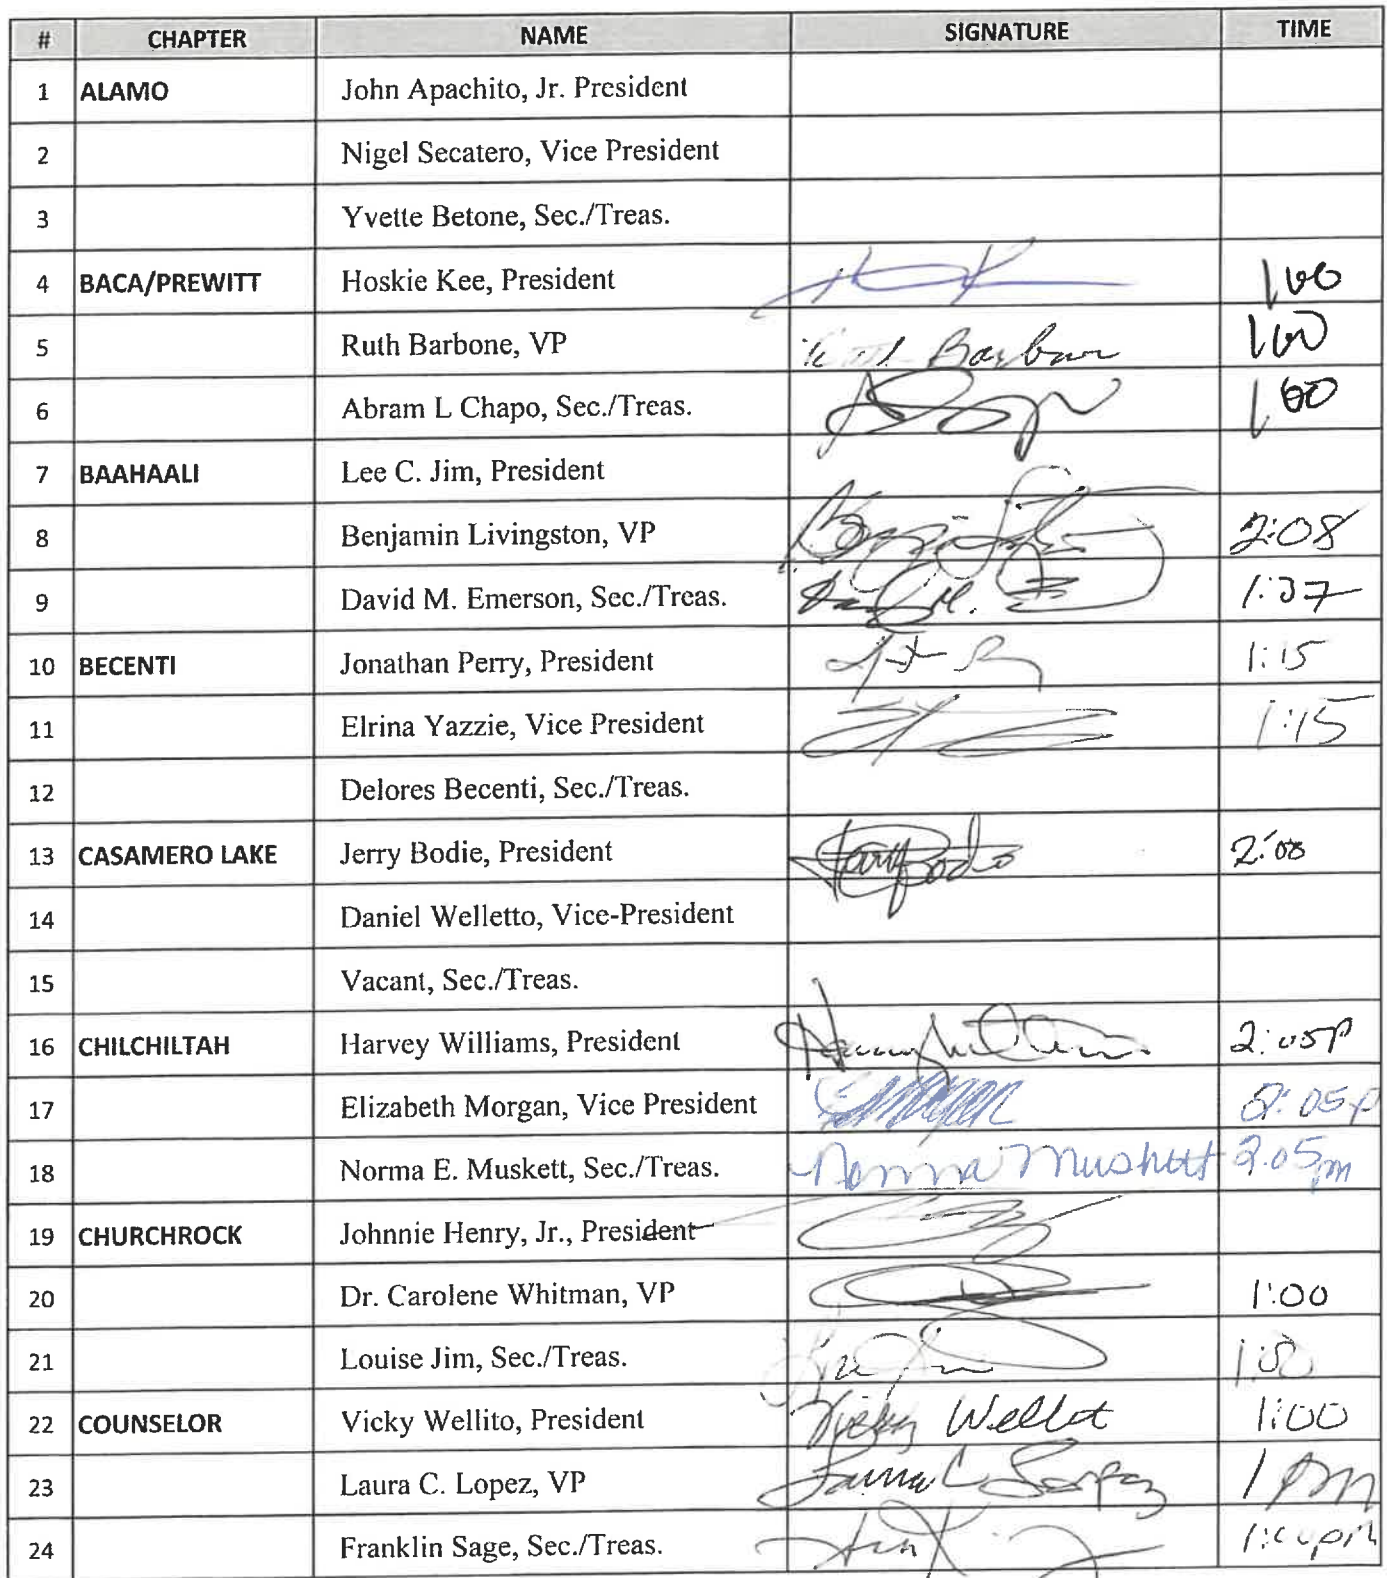 # CHAPTER NAME SIGNATURE TIME
1 ALAMO John Apachito, Jr. President
2 Nigel Secatero, Vice President
3 Yvette Betone, Sec./Treas.
4 BACA/PREWITT Hoskie Kee, President 100
5 Ruth Barbone, VP 100
6 Abram L Chapo, Sec./Treas. 100
7 BAAHAALI Lee C. Jim, President
8 Benjamin Livingston, VP 2:08
9 David M. Emerson, Sec./Treas. 1:37
10 BECENTI Jonathan Perry, President 1:15
11 Elrina Yazzie, Vice President 1:15
12 Delores Becenti, Sec./Treas.
13 CASAMERO LAKE Jerry Bodie, President 2:00
14 Daniel Welletto, Vice-President
15 Vacant, Sec./Treas.
16 CHILCHILTAH Harvey Williams, President 2:05P
17 Elizabeth Morgan, Vice President 2:05p
18 Norma E. Muskett, Sec./Treas. Norma Muskett 2:05pm
19 CHURCHROCK Johnnie Henry, Jr., President
20 Dr. Carolene Whitman, VP 1:00
21 Louise Jim, Sec./Treas. 1:00
22 COUNSELOR Vicky Wellito, President Vicky 1:00
23 Laura C. Lopez, VP Laura C Lopez 1 pm
24 Franklin Sage, Sec./Treas.